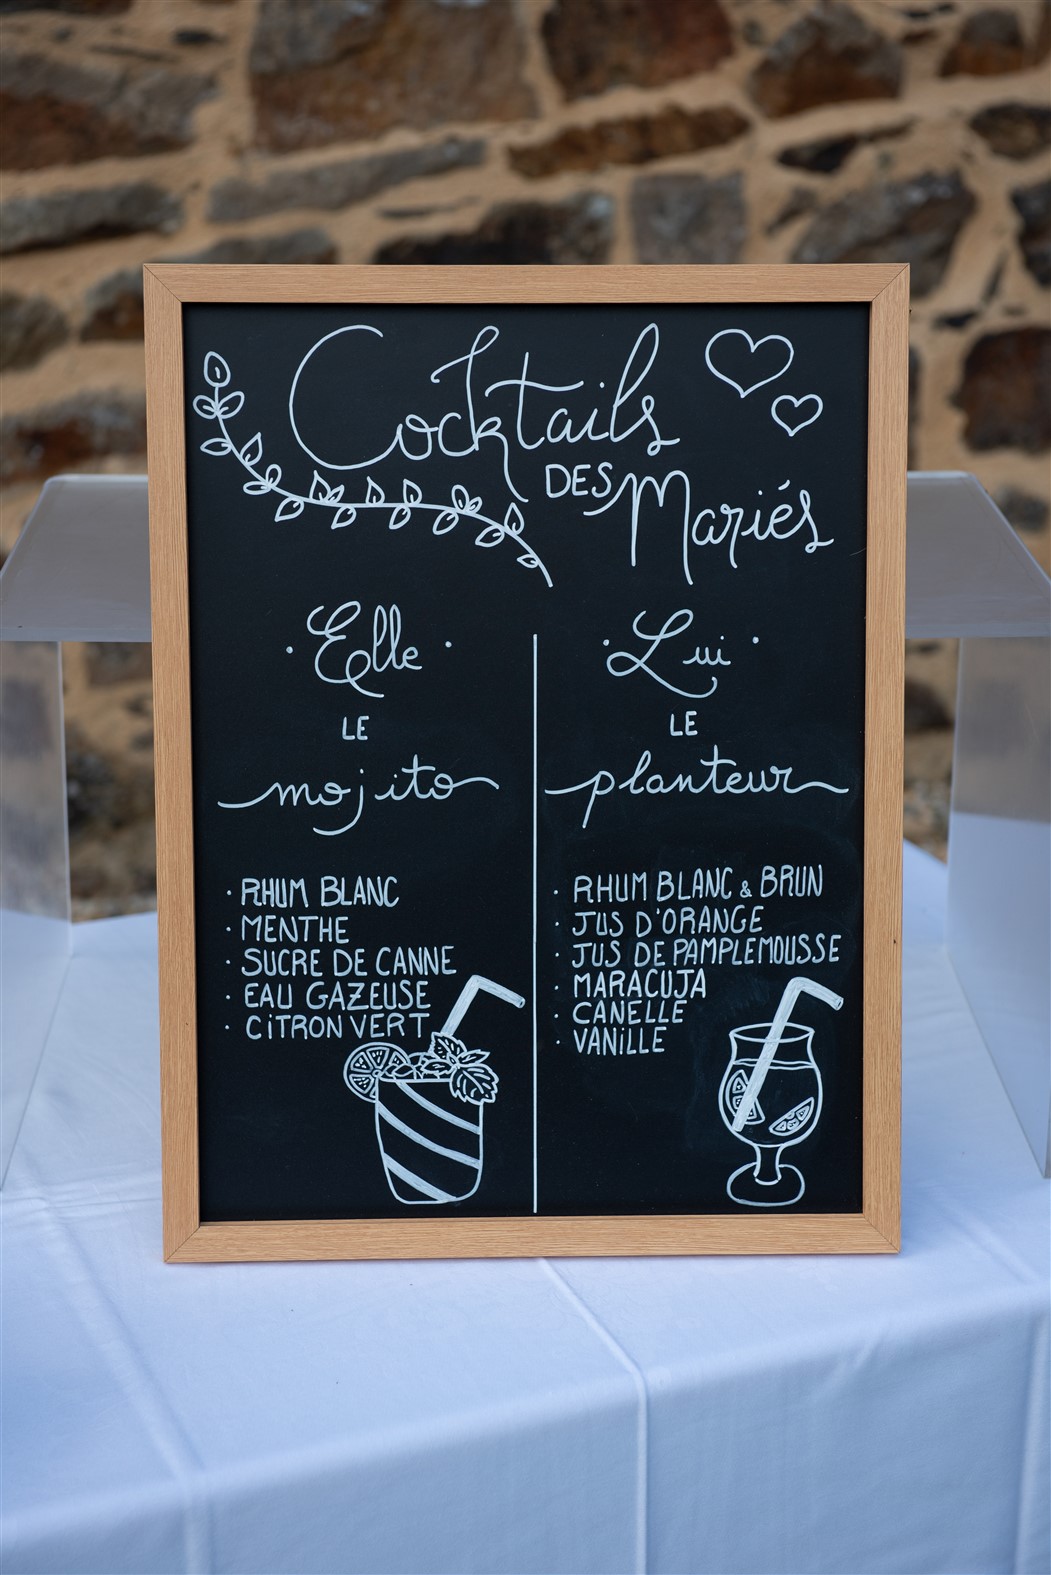 Cocktails
DES Mariés
· Elle ·
LE
mojito
· RHUM BLANC
· MENTHE
· SUCRE DE CANNE
· EAU GAZEUSE
· CITRON VERT
· Lui ·
LE
planteur
· RHUM BLANC & BRUN
· JUS D'ORANGE
· JUS DE PAMPLEMOUSSE
· MARACUJA
· CANELLE
· VANILLE